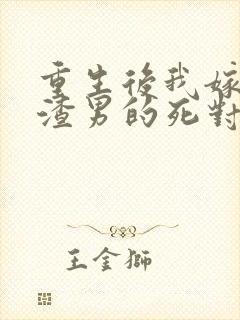 重生後我嫁
渣男的死對
王金獅